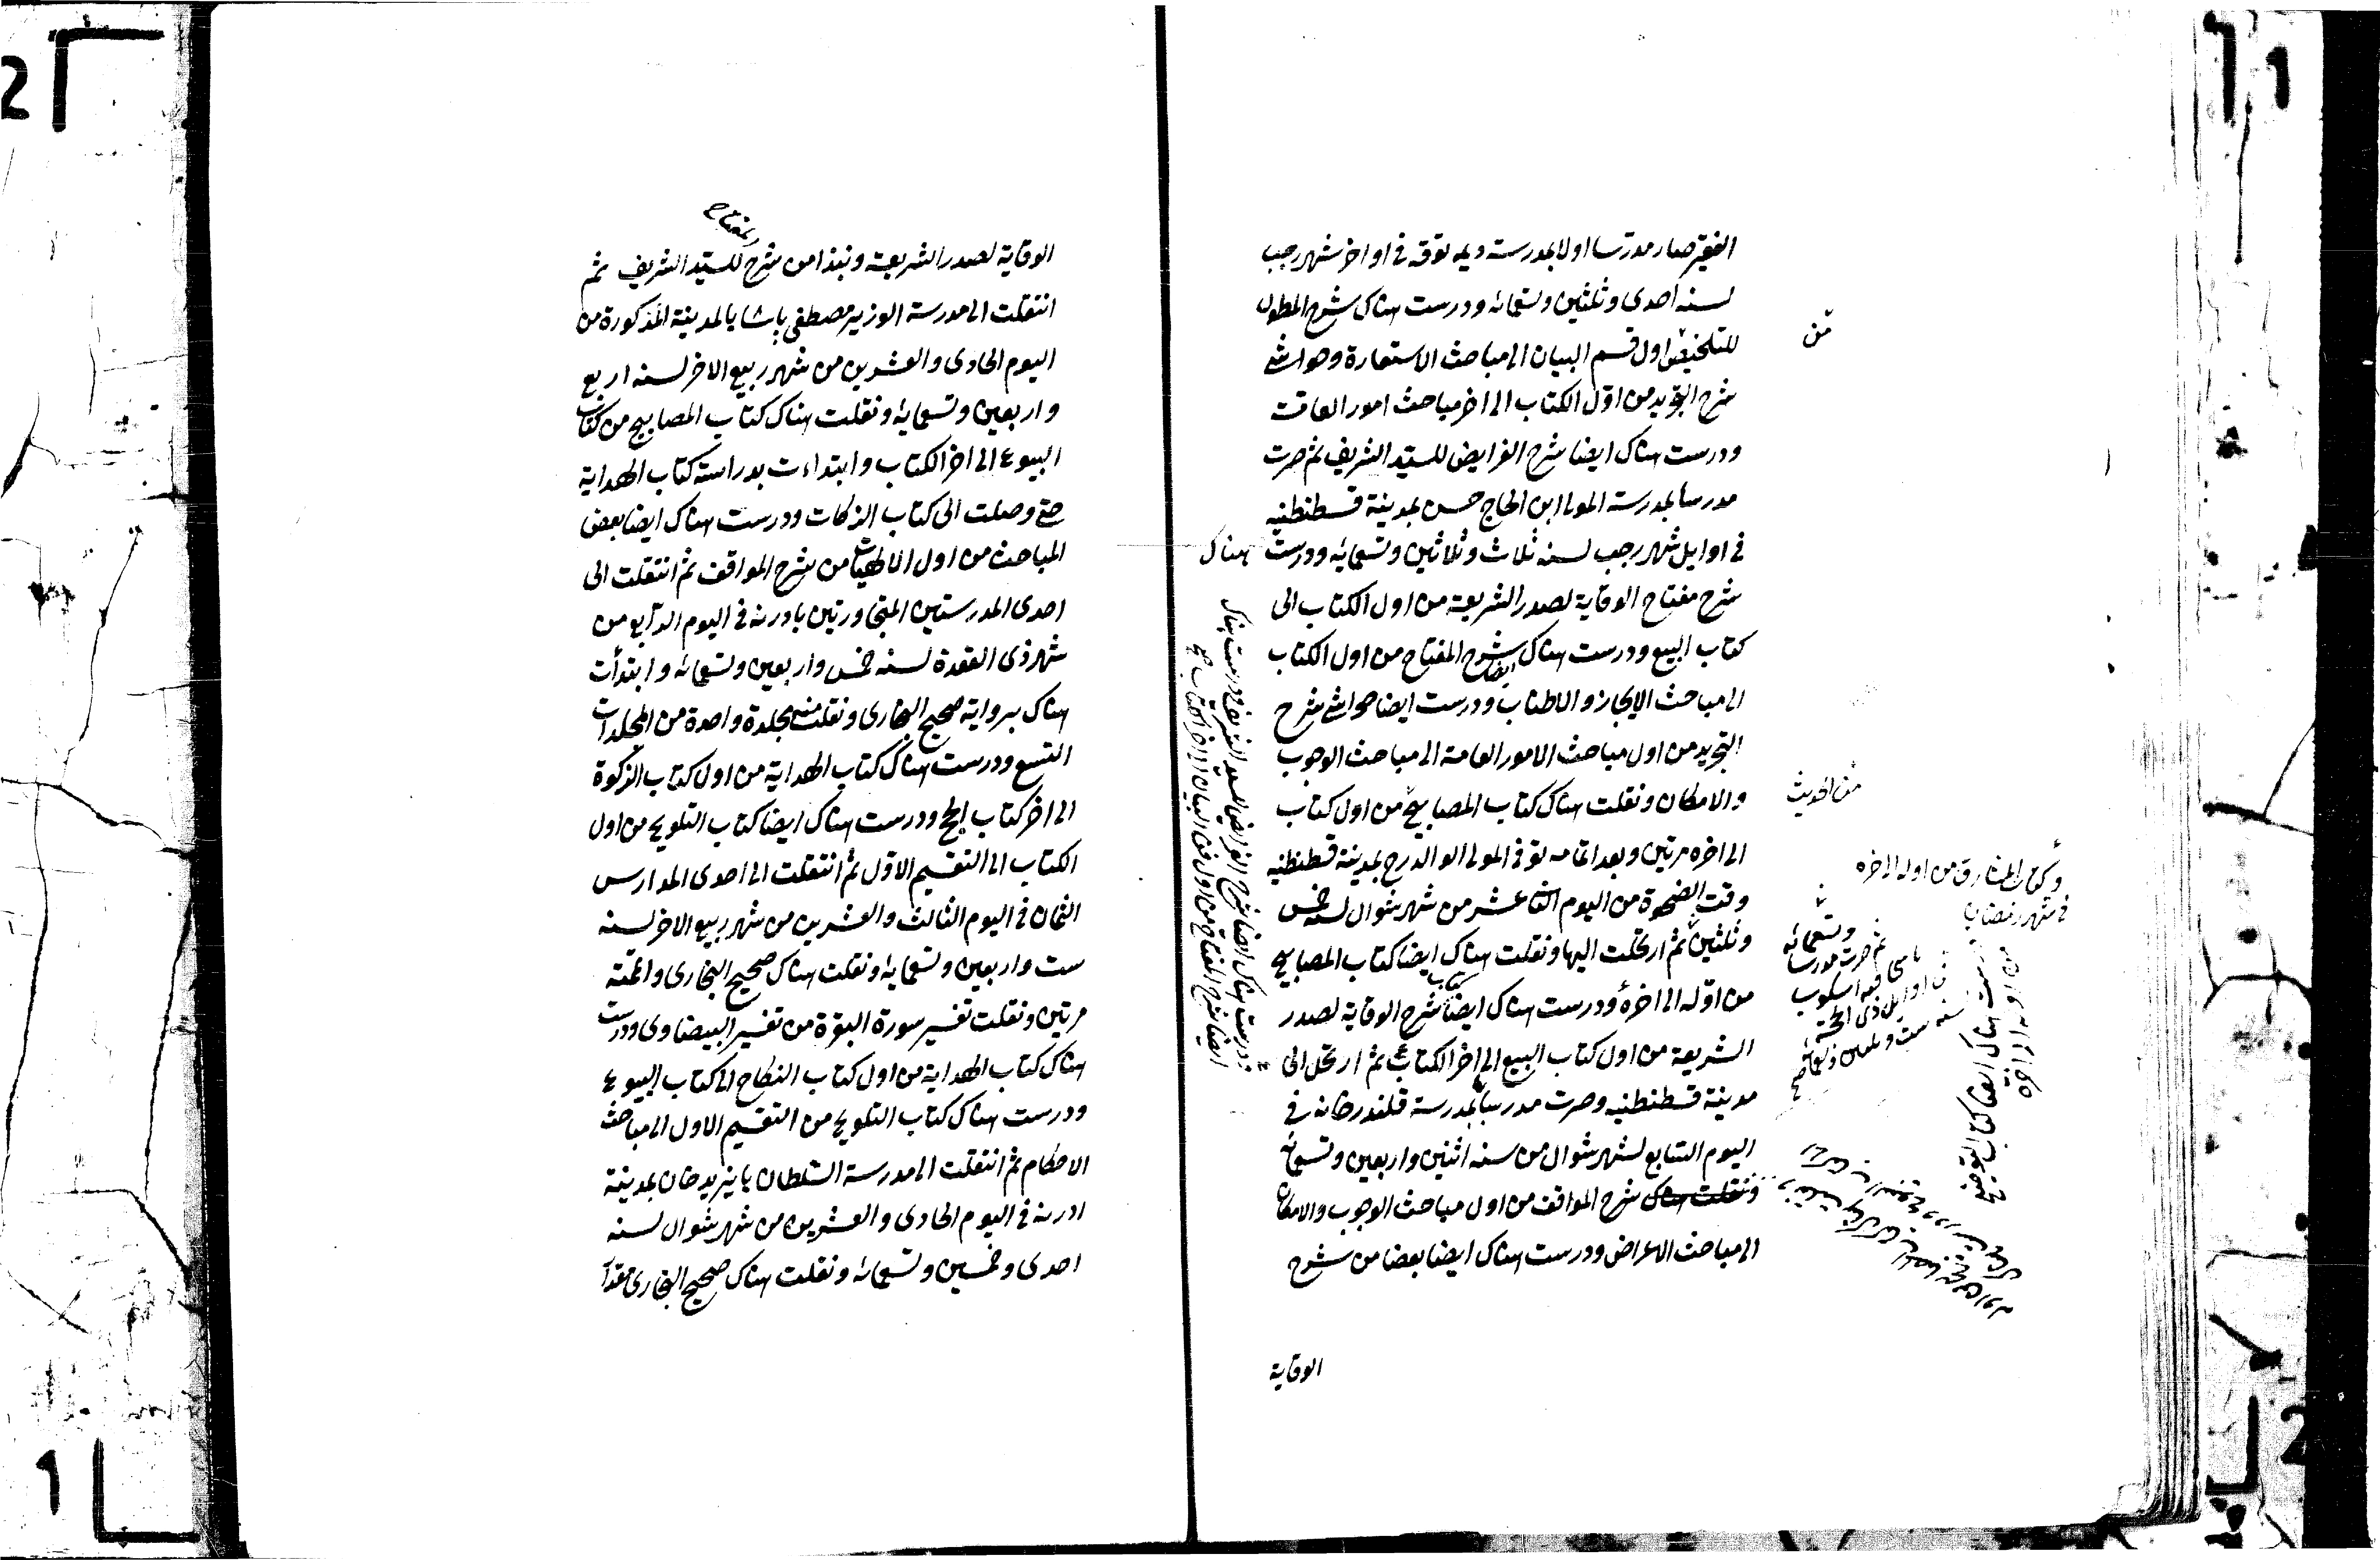 الفقير صار مدرسا اولا بمدرسة ديمه توقه في اواخر شهر رجب
لسنه احدى وثلثين وتسعمائه ودرست هناك شرح المطول
للتلخيص اول قسم البيان الى مباحث الاستعارة وحواشى
شرح التجريد من اول الكتاب الى اخر مباحث امور العامة
ودرست هناك ايضا شرح الفرايض للسيد الشريف ثم صرت
مدرسا بمدرسة المولى ابن الحاج حسن بمدينة قسطنطنيه
في اوايل شهر رجب لسنه ثلاث وثلاثين وتسعمائه ودرست هناك
شرح مفتاح الوقاية لصدر الشريعة من اول الكتاب الى
كتاب البيع ودرست هناك ايضا شرح المفتاح من اول الكتاب
الى مباحث الايجاز والاطناب ودرست ايضا حواشى شرح
التجريد من اول مباحث الامور العامة الى مباحث الوجوب
والامكان ونقلت هناك كتاب المصابيح من اول كتاب
الى اخره مرتين وبعد اتمامه توفى المولى الوالد رح بمدينة قسطنطنيه
وقت الضحوة من اليوم الثانى عشر من شهر شوال لسنه خمس
وثلثين ثم ارتحلت اليها ونقلت هناك ايضا كتاب المصابيح
من اوله الى اخره ودرست هناك ايضا كتاب شرح الوقاية لصدر
الشريعة من اول كتاب البيع الى اخر الكتاب ثم ارتحل الى
مدينة قسطنطنيه وصرت مدرسا بمدرسة قلندرخانه في
اليوم السابع لشهر شوال من سنه اثنين واربعين وتسعمائه
ونقلت هناك شرح المواقف من اول مباحث الوجوب والامكان
الى مباحث الاعراض ودرست هناك ايضا بعضا من شرح
الوقاية
من
من الحديث
وكتاب المشارق من اوله الى اخره
في شهر رمضان
وتسعمائه
ثم صرت مدرسا
باسحاقيه اسكوب
في اوايل ذى الحجة
سنه ست وثلثين وتسعمائه صح
ودرست هناك ايضا كتاب التوضيح
من اوله الى اخره
ودرست هناك ايضا شرح الفرايض للسيد الشريف ودرست هناك
ايضا شرح المفتاح من اول فن البيان الى اخر الكتاب صح
الوقاية لصدر الشريعة ونبذا من شرح المفتاح للسيد الشريف ثم
انتقلت الى مدرسة الوزير مصطفى باشا بالمدينة المذكورة من
اليوم الحادى والعشرين من شهر ربيع الاخر لسنه اربع
واربعين وتسعمايه ونقلت هناك كتاب المصابيح من كتاب
البيوع الى اخر الكتاب وابتداءت بدراسة كتاب الهداية
حتى وصلت الى كتاب الزكات ودرست هناك ايضا بعض
المباحث من اول الالهيات من شرح المواقف ثم انتقلت الى
احدى المدرستين المتجاورتين بادرنه في اليوم الرابع من
شهر ذى القعدة لسنه خمس واربعين وتسعمائه وابتدأت
هناك برواية صحيح البخارى ونقلت منه مجلدة واحدة من المجلدات
التسع ودرست هناك كتاب الهداية من اول كتاب الزكوة
الى اخر كتاب الحج ودرست هناك ايضا كتاب التلويح من اول
الكتاب الى التقسيم الاول ثم انتقلت الى احدى المدارس
الثمان في اليوم الثالث والعشرين من شهر ربيع الاخر لسنه
ست واربعين وتسعمايه ونقلت هناك صحيح البخارى واتممته
مرتين ونقلت تفسير سورة البقرة من تفسير البيضاوى ودرست
هناك كتاب الهداية من اول كتاب النكاح الى كتاب البيوع
ودرست هناك كتاب التلويح من التقسيم الاول الى مباحث
الاحكام ثم انتقلت الى مدرسة السلطان بايزيد خان بمدينة
ادرنه في اليوم الحادى والعشرين من شهر شوال لسنه
احدى وخمسين وتسعمائه ونقلت هناك صحيح البخارى مقدار